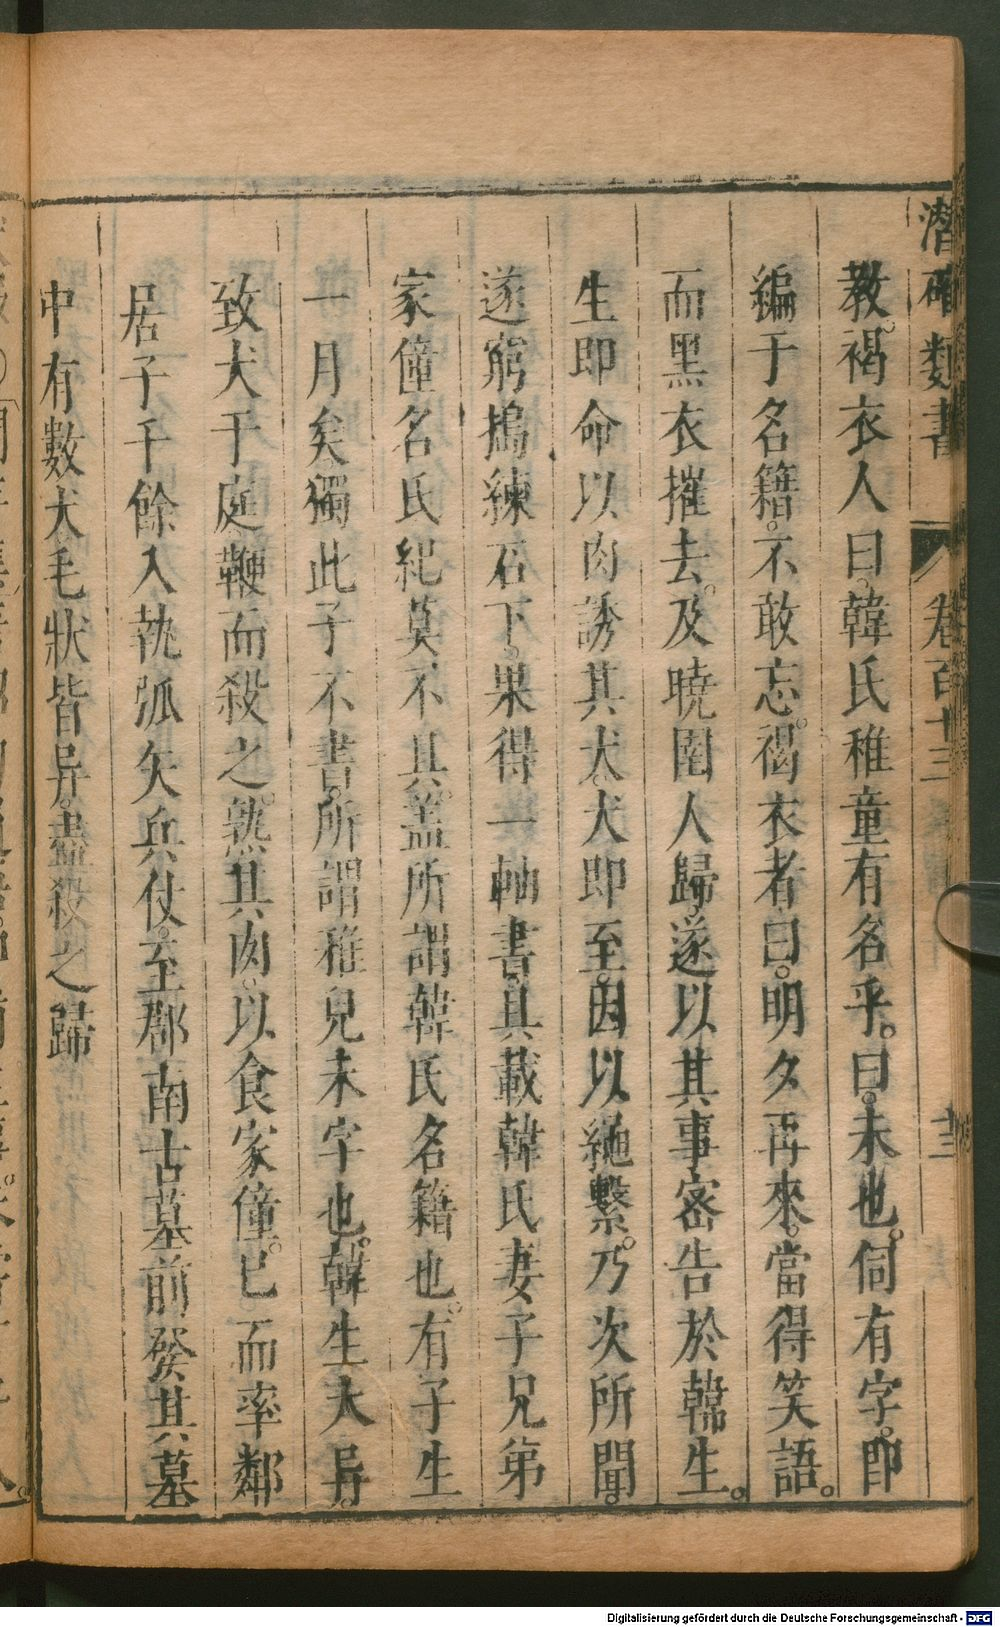 潛確類書 卷百十三 十三
教。褐衣人曰。韓氏稚童有名乎。曰。未也。伺有字。即
編于名籍。不敢忘。褐衣者曰。明夕再來。當得笑語。
而黑衣摧去。及曉圉人歸。遂以其事密告於韓生。
生即命以肉誘其犬。犬即至。因以繩繫。乃次所聞。
遂窮搗練石下。果得一軸書。具載韓氏妻子兄弟
家僮名氏紀莫不具。盖所謂韓氏名籍也。有子生
一月矣獨此子不書。所謂稚兒未字也。韓生大异。
致犬于庭鞭而殺之。熟其肉。以食家僮。已而率鄰
居子千餘入執弧矢兵仗。至郡南古墓前發其墓
中有數犬毛狀皆异。盡殺之歸
Digitalisierung gefördert durch die Deutsche Forschungsgemeinschaft - DFG